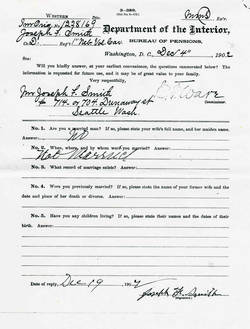 3-389.
Department of the Interior,
Joseph F. Smith
BUREAU OF PENSIONS,
Washington, D. C., Dec 14, 190
Sir:
Will you kindly answer, at your earliest convenience, the questions enumerated below? The
information is requested for future use, and it may be of great value to your family.
Very respectfully,
Mr Joseph F. Smith
Seattle
Wash.
No. 1. Are you a married man? If so, please state your wife's full name, and her maiden name.
Answer: No
No. 2. When, where, and by whom were you married? Answer:
Not Married
No. 3. What record of marriage exists? Answer:
No. 4. Were you previously married? If so, please state the name of your former wife and the
date and place of her death or divorce. Answer:
No. 5. Have you any children living? If so, please state their names and the dates of their
birth. Answer:
Date of reply, Dec 19, 190
Joseph F. Smith
(Signature.)